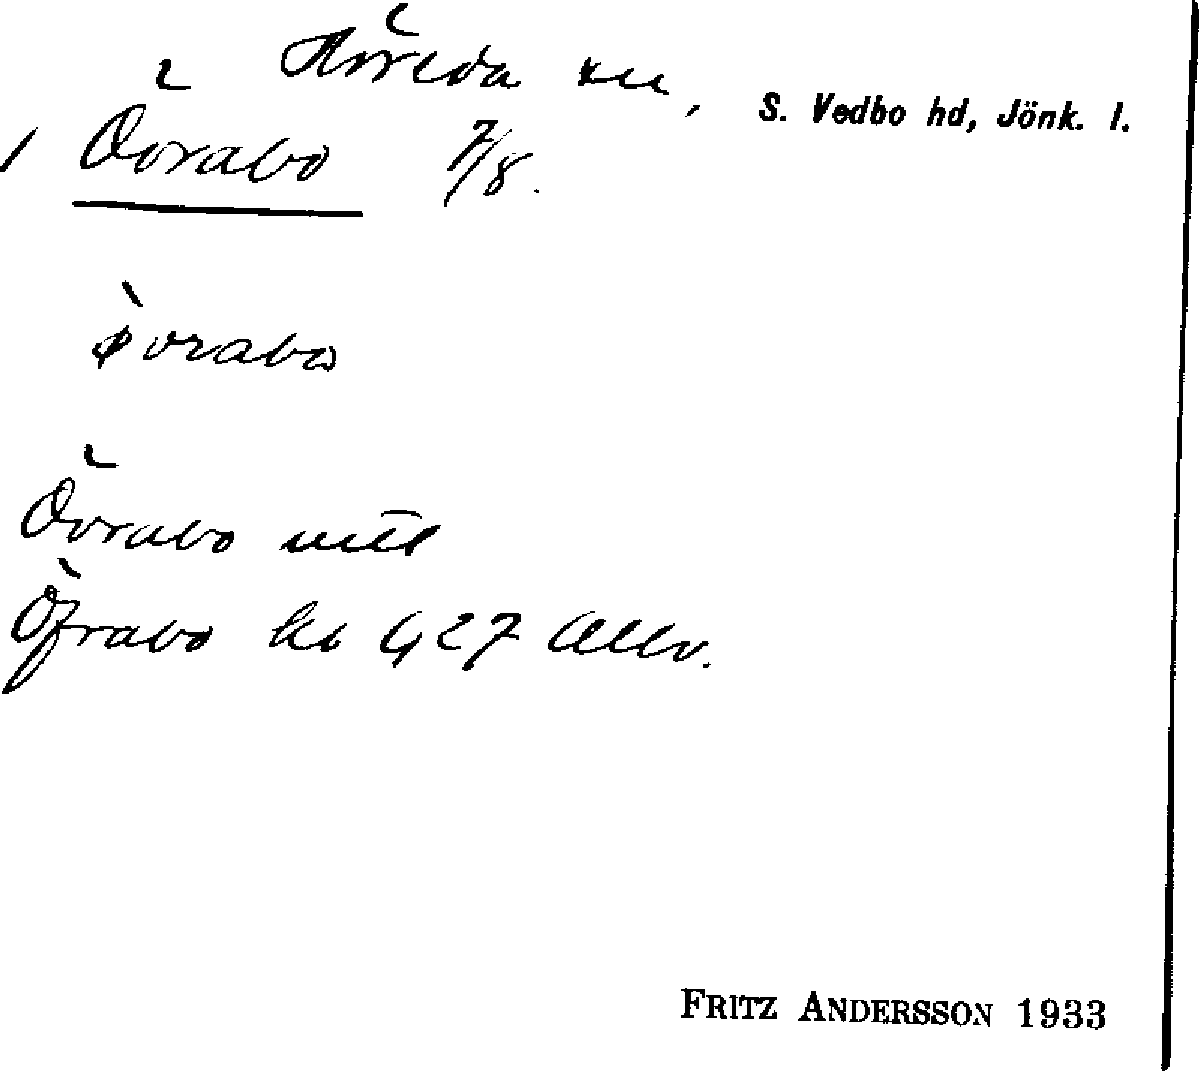 Höreda sn, S. Vedbo hd, Jönk. l.
1 Övrabo 7/8.
øvrabo
Övrabo mtl
Öfrabo kb 427 Allv.
FRITZ ANDERSSON 1933